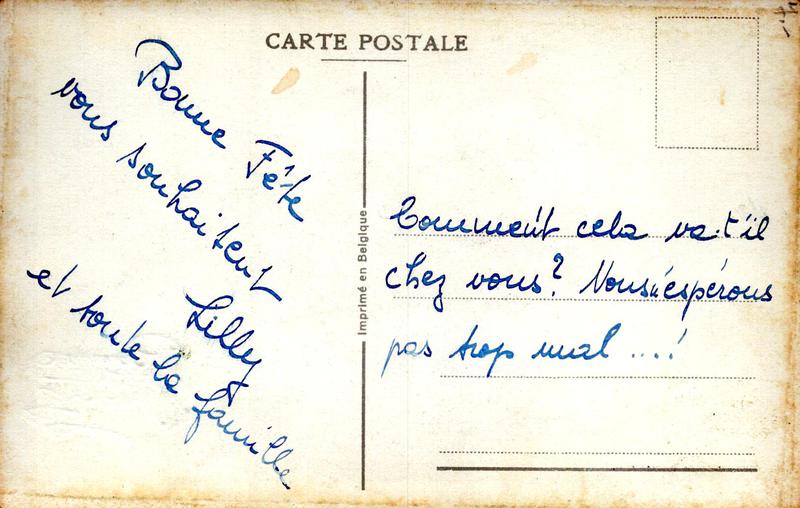 CARTE POSTALE
Bonne Fête
vous souhaitent
Lilly
et toute la famille
Imprimé en Belgique
Comment cela va-t'il
chez vous? Nous espérons
pas trop mal ....!